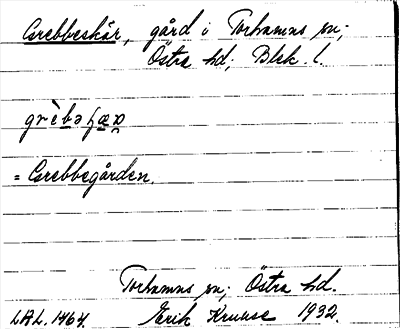 Grebbeskär, gård i Torhamns sn;
Östra hd; Blek. l.
grèbəʂæʀ
= Grebbegården.
Torhamns sn; Östra hd.
LAL. 1464. Erik Kruuse 1932.